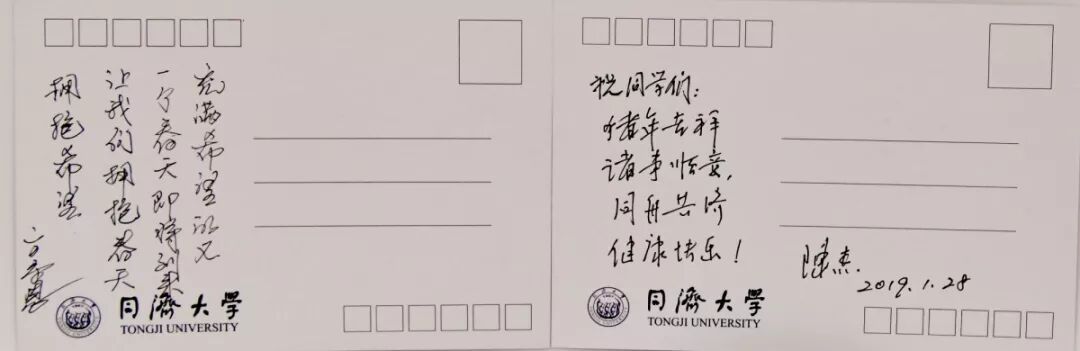 充满希望的又
一个春天即将到来
让我们拥抱春天
拥抱希望
同濟大学
TONGJI UNIVERSITY
祝同学们：
猪年吉祥
诸事顺意，
同舟共济
健康快乐！
陈杰
2019.1.28
同濟大学
TONGJI UNIVERSITY